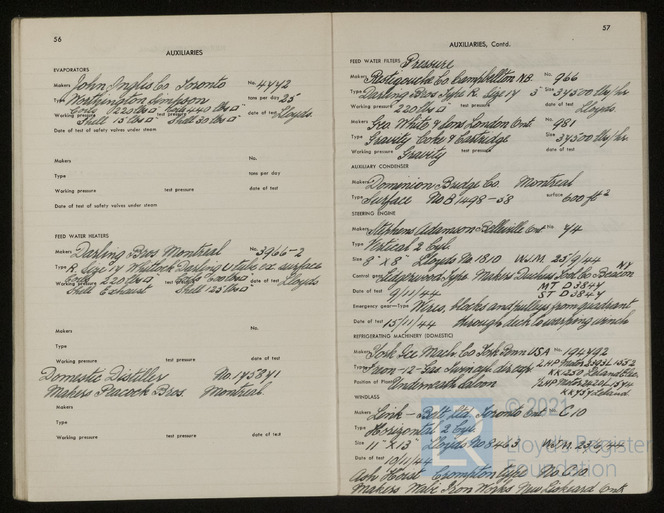 56
AUXILIARIES
EVAPORATORS
Makers John Inglis Co Toronto No. 4442
Type Worthington Simpson tons per day 25
Working pressure Coils 220 lbs □" test pressure Coils 440 lbs □" date of test Lloyds
Shell 15 lbs □" Shell 30 lbs □"
Date of test of safety valves under steam
Makers No.
Type tons per day
Working pressure test pressure date of test
Date of test of safety valves under steam
FEED WATER HEATERS
Makers Darling Bros Montreal No. 3966-2
Type R. Size 14 Darling U tube surface
Working pressure Coils 220 lbs □" test pressure date of test Lloyds
Shell Exhaust Shell 125 lbs □"
Makers No.
Type
Working pressure test pressure date of test
Domestic Distiller No. 145841
Makers Peacock Bros. Montreal
Makers No.
Type
Working pressure test pressure date of test
57
AUXILIARIES, Contd.
FEED WATER FILTERS Pressure
Makers Restigouche Co Campbellton NB No. 966
Type Darling Bros Type R. Size 14 5" Size 34500 lbs/hr
Working pressure 220 lbs □" test pressure date of test Lloyds
Makers Geo. White & Sons London Ont No. 981
Type Gravity Coke & Cartridge Size 34500 lbs/hr.
Working pressure Gravity test pressure date of test
AUXILIARY CONDENSER
Makers Dominion Bridge Co. Montreal
Type Surface No B1498-58 surface 600 ft²
STEERING ENGINE
Makers Stephens Adamson Belleville Ont No 44
Type Vertical 2 Cyl.
Size 8" x 8" Lloyds No 1810 WJM. 25/9/44
Control gear Lidgerwood Type Makers Co. Beacon NY
Date of test 9/11/44 MT D3844
ST D3844
Emergency gear—Type Wires, blocks and pulleys from quadrant
Date of test 15/11/44 through deck to warping winch
REFRIGERATING MACHINERY (DOMESTIC)
Makers York Ice Mach. Co York Penn USA No. 194492
Type Freon-12-Gas
Position of Plant Underneath Saloon
WINDLASS
Makers Link-Belt Ltd. Toronto Ont No. C 10
Type Horizontal 2 Cyl.
Size 11" x 13" Lloyds No 8463 WJM. 23/9/44
Date of test 10/11/44
Ash Hoist Crompton type No. C10
Makers Wabi Iron Works New Liskeard Ont
LR © 2021
Lloyd's Register
Foundation